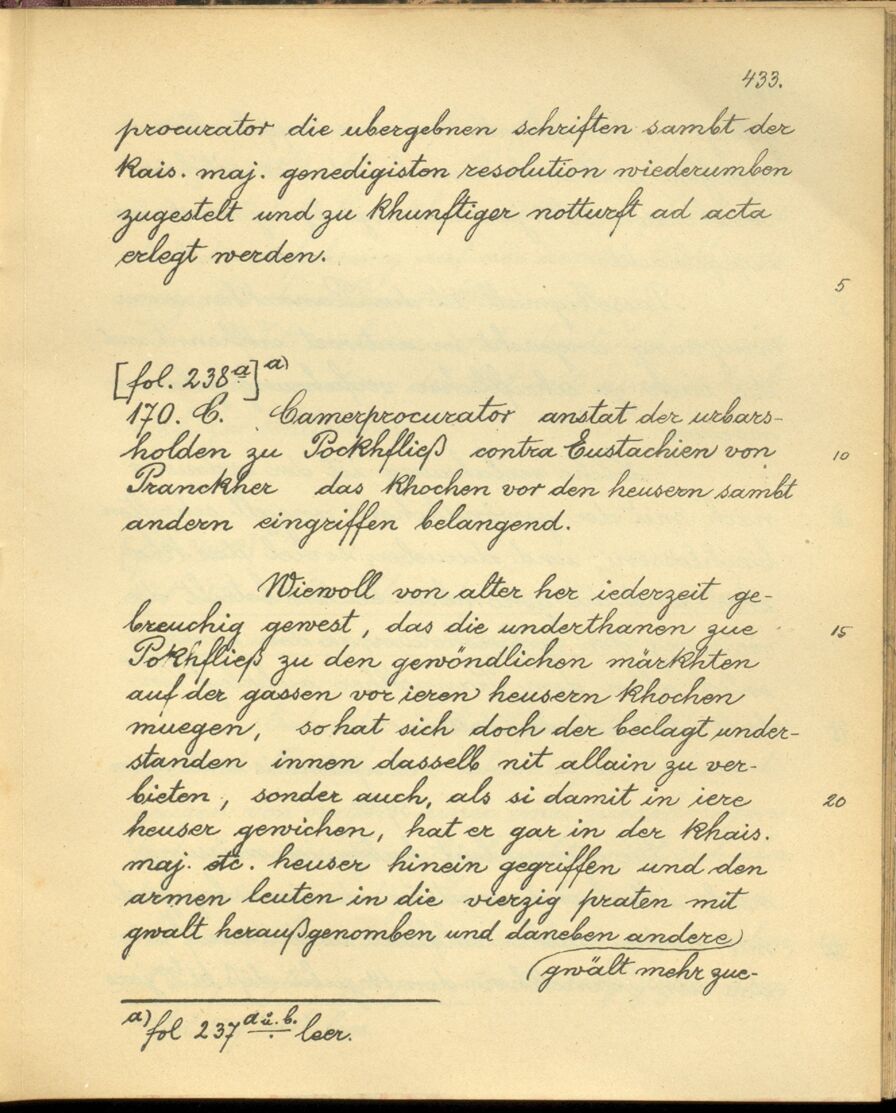 433.
procurator die ubergebnen schriften sambt der
kais. maj. genedigisten resolution wiederumben
zugestelt und zu khunftiger notturft ad acta
erlegt werden.
5
[fol. 238a]a)
170. E. Camerprocurator anstat der urbars-
holden zu Pockhfließ contra Eustachien von
10
Pranckher das khochen vor den heusern sambt
andern eingriffen belangend.
Wiewoll von alter her iederzeit ge-
breuchig gewest, das die underthanen zue
15
Pokhfließ zu den gewöndlichen märkhten
auf der gassen vor ieren heusern khochen
muegen, so hat sich doch der beclagt under-
standen innen dasselb nit allain zu ver-
bieten, sonder auch, als si damit in iere
20
heuser gewichen, hat er gar in der khais.
maj. etc. heuser hinein gegriffen und den
armen leuten in die vierzig praten mit
gwalt heraußgenomben und daneben andere
gwält mehr zue-
a) fol 237 a u. b. leer.